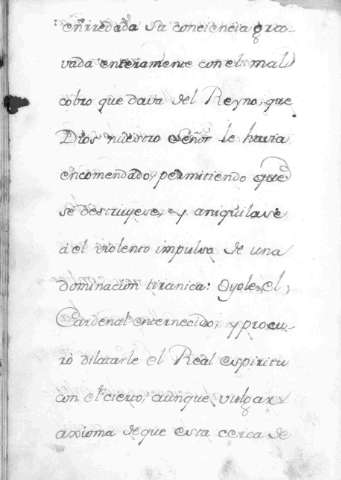 enrredada su conciencia y pro-
vada enteramente con el mal
cobro que dava del Reyno, que
Dios nuestro Señor le havia
encomendado, permitiendo que
se destruyese, y aniquilase
à el violento impulso de una
dominacion tiranica: Oyole, el,
Cardenal enternecido, y procu-
rò dilatarle el Real espiritu
con el cierto, aunque vulgar
axioma de que esta cerca de